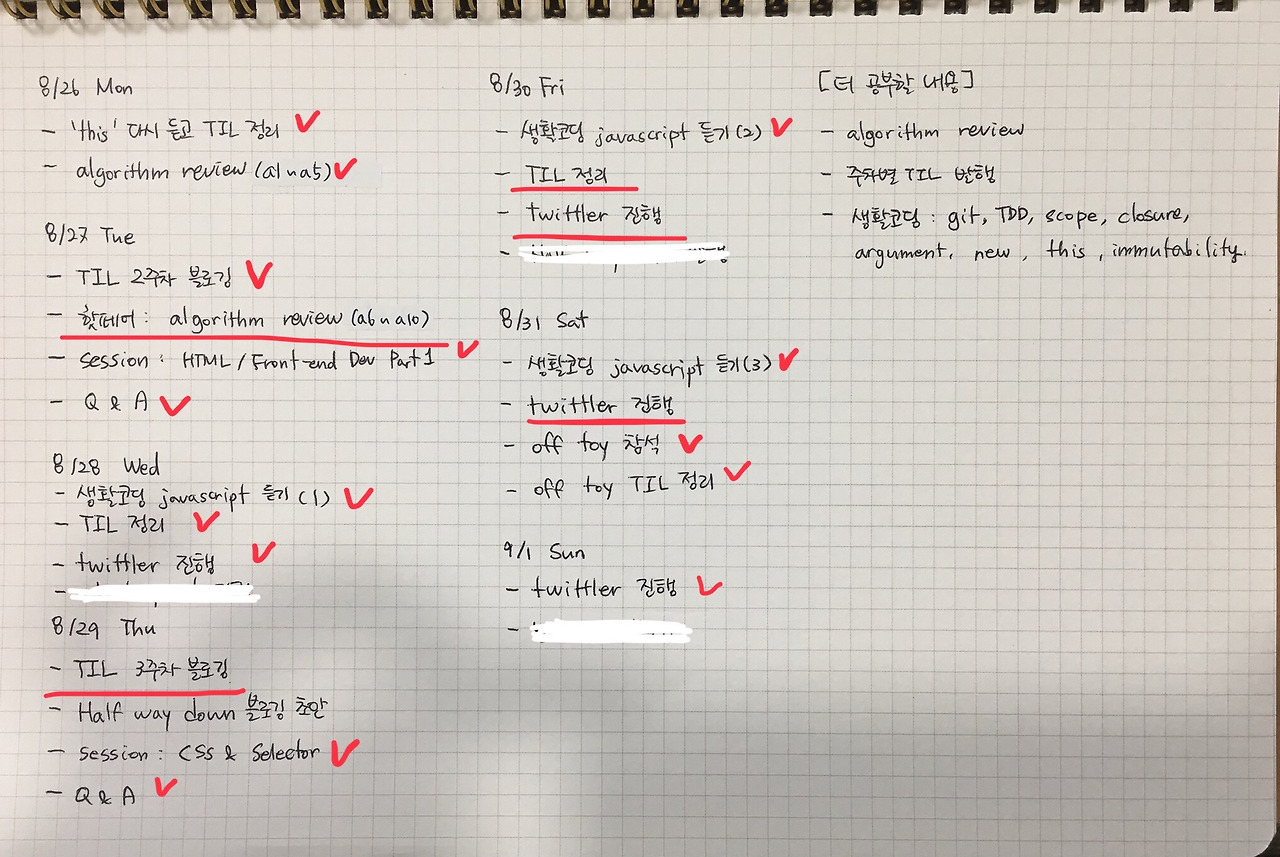 8/26 Mon
- 'this' 다시 듣고 TIL 정리
- algorithm review (a1 ~ a5)
8/27 Tue
- TIL 2주차 블로깅
- 핫페어 : algorithm review (a6 ~ a10)
- session : HTML / Front-end Dev Part 1
- Q & A
8/28 Wed
- 생활코딩 javascript 듣기 (1)
- TIL 정리
- twittler 진행
-
8/29 Thu
- TIL 3주차 블로깅
- Half way down 블로깅 초안
- session : CSS & Selector
- Q & A
8/30 Fri
- 생활코딩 javascript 듣기 (2)
- TIL 정리
- twittler 진행
-
8/31 Sat
- 생활코딩 javascript 듣기 (3)
- twittler 진행
- off toy 참석
- off toy TIL 정리
9/1 Sun
- twittler 진행
-
[더 공부할 내용]
- algorithm review
- 주차별 TIL 발행
- 생활코딩 : git, TDD, scope, closure,
argument, new, this, immutability.